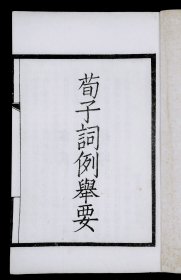 荀子詞例舉要